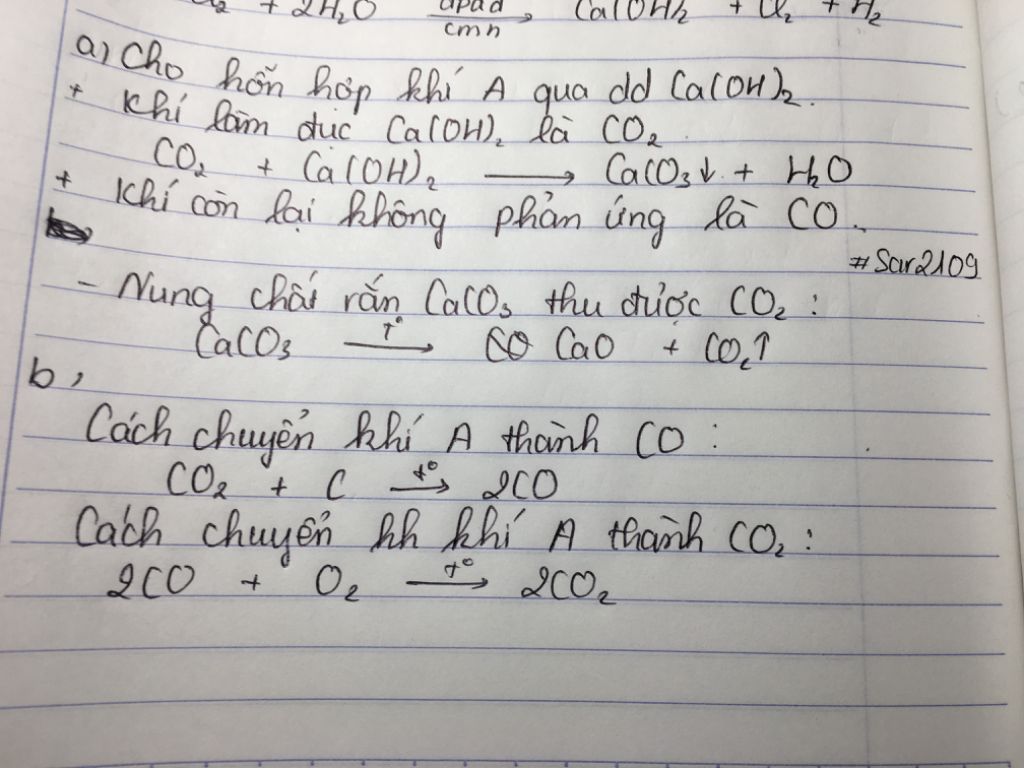 + 2H₂O đpdd/cmn → Ca(OH)₂ + Cl₂ + H₂
a, Cho hỗn hợp khí A qua dd Ca(OH)₂.
+ Khí làm đục Ca(OH)₂ là CO₂.
CO₂ + Ca(OH)₂ → CaCO₃↓ + H₂O
+ Khí còn lại không phản ứng là CO.
#Scr2109
- Nung chất rắn CaCO₃ thu được CO₂ :
CaCO₃ t° → CaO + CO₂↑
b,
Cách chuyển khí A thành CO :
CO₂ + C t° → 2CO
Cách chuyển hh khí A thành CO₂ :
2CO + O₂ t° → 2CO₂